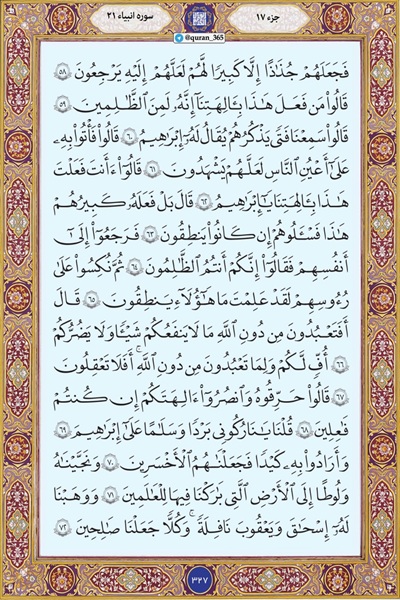 جزء ۱۷
سوره انبیاء ۲۱
@quran_365
فَجَعَلَهُمْ جُذَٰذًا إِلَّا كَبِيرًا لَّهُمْ لَعَلَّهُمْ إِلَيْهِ يَرْجِعُونَ ۵۸
قَالُوا۟ مَن فَعَلَ هَٰذَا بِـَٔالِهَتِنَآ إِنَّهُۥ لَمِنَ ٱلظَّٰلِمِينَ ۵۹
قَالُوا۟ سَمِعْنَا فَتًى يَذْكُرُهُمْ يُقَالُ لَهُۥٓ إِبْرَٰهِيمُ ۶۰ قَالُوا۟ فَأْتُوا۟ بِهِۦ
عَلَىٰٓ أَعْيُنِ ٱلنَّاسِ لَعَلَّهُمْ يَشْهَدُونَ ۶۱ قَالُوٓا۟ ءَأَنتَ فَعَلْتَ
هَٰذَا بِـَٔالِهَتِنَا يَٰٓإِبْرَٰهِيمُ ۶۲ قَالَ بَلْ فَعَلَهُۥ كَبِيرُهُمْ
هَٰذَا فَسْـَٔلُوهُمْ إِن كَانُوا۟ يَنطِقُونَ ۶۳ فَرَجَعُوٓا۟ إِلَىٰٓ
أَنفُسِهِمْ فَقَالُوٓا۟ إِنَّكُمْ أَنتُمُ ٱلظَّٰلِمُونَ ۶۴ ثُمَّ نُكِسُوا۟ عَلَىٰ
رُءُوسِهِمْ لَقَدْ عَلِمْتَ مَا هَٰٓؤُلَآءِ يَنطِقُونَ ۶۵ قَالَ
أَفَتَعْبُدُونَ مِن دُونِ ٱللَّهِ مَا لَا يَنفَعُكُمْ شَيْـًٔا وَلَا يَضُرُّكُمْ
۶۶ أُفٍّ لَّكُمْ وَلِمَا تَعْبُدُونَ مِن دُونِ ٱللَّهِ ۖ أَفَلَا تَعْقِلُونَ
۶۷ قَالُوا۟ حَرِّقُوهُ وَٱنصُرُوٓا۟ ءَالِهَتَكُمْ إِن كُنتُمْ
فَٰعِلِينَ ۶۸ قُلْنَا يَٰنَارُ كُونِى بَرْدًا وَسَلَٰمًا عَلَىٰٓ إِبْرَٰهِيمَ ۶۹
وَأَرَادُوا۟ بِهِۦ كَيْدًا فَجَعَلْنَٰهُمُ ٱلْأَخْسَرِينَ ۷۰ وَنَجَّيْنَٰهُ
وَلُوطًا إِلَى ٱلْأَرْضِ ٱلَّتِى بَٰرَكْنَا فِيهَا لِلْعَٰلَمِينَ ۷۱ وَوَهَبْنَا
لَهُۥٓ إِسْحَٰقَ وَيَعْقُوبَ نَافِلَةً ۖ وَكُلًّا جَعَلْنَا صَٰلِحِينَ ۷۲
۳۲۷